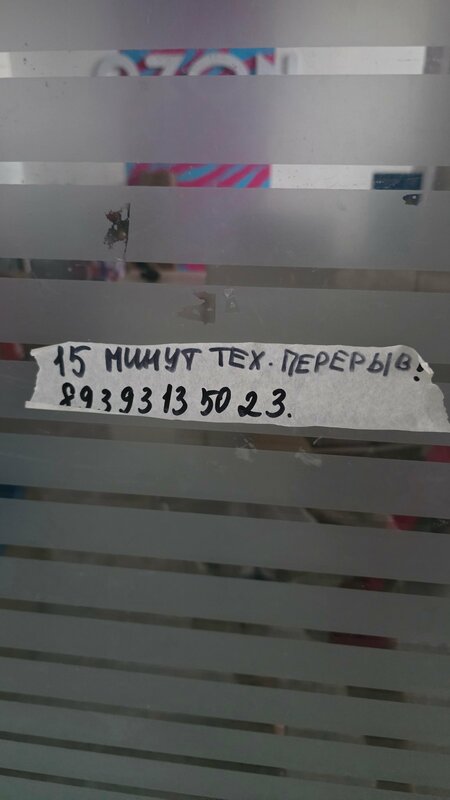 OZON
15 МИНУТ ТЕХ. ПЕРЕРЫВ!
89393135023.